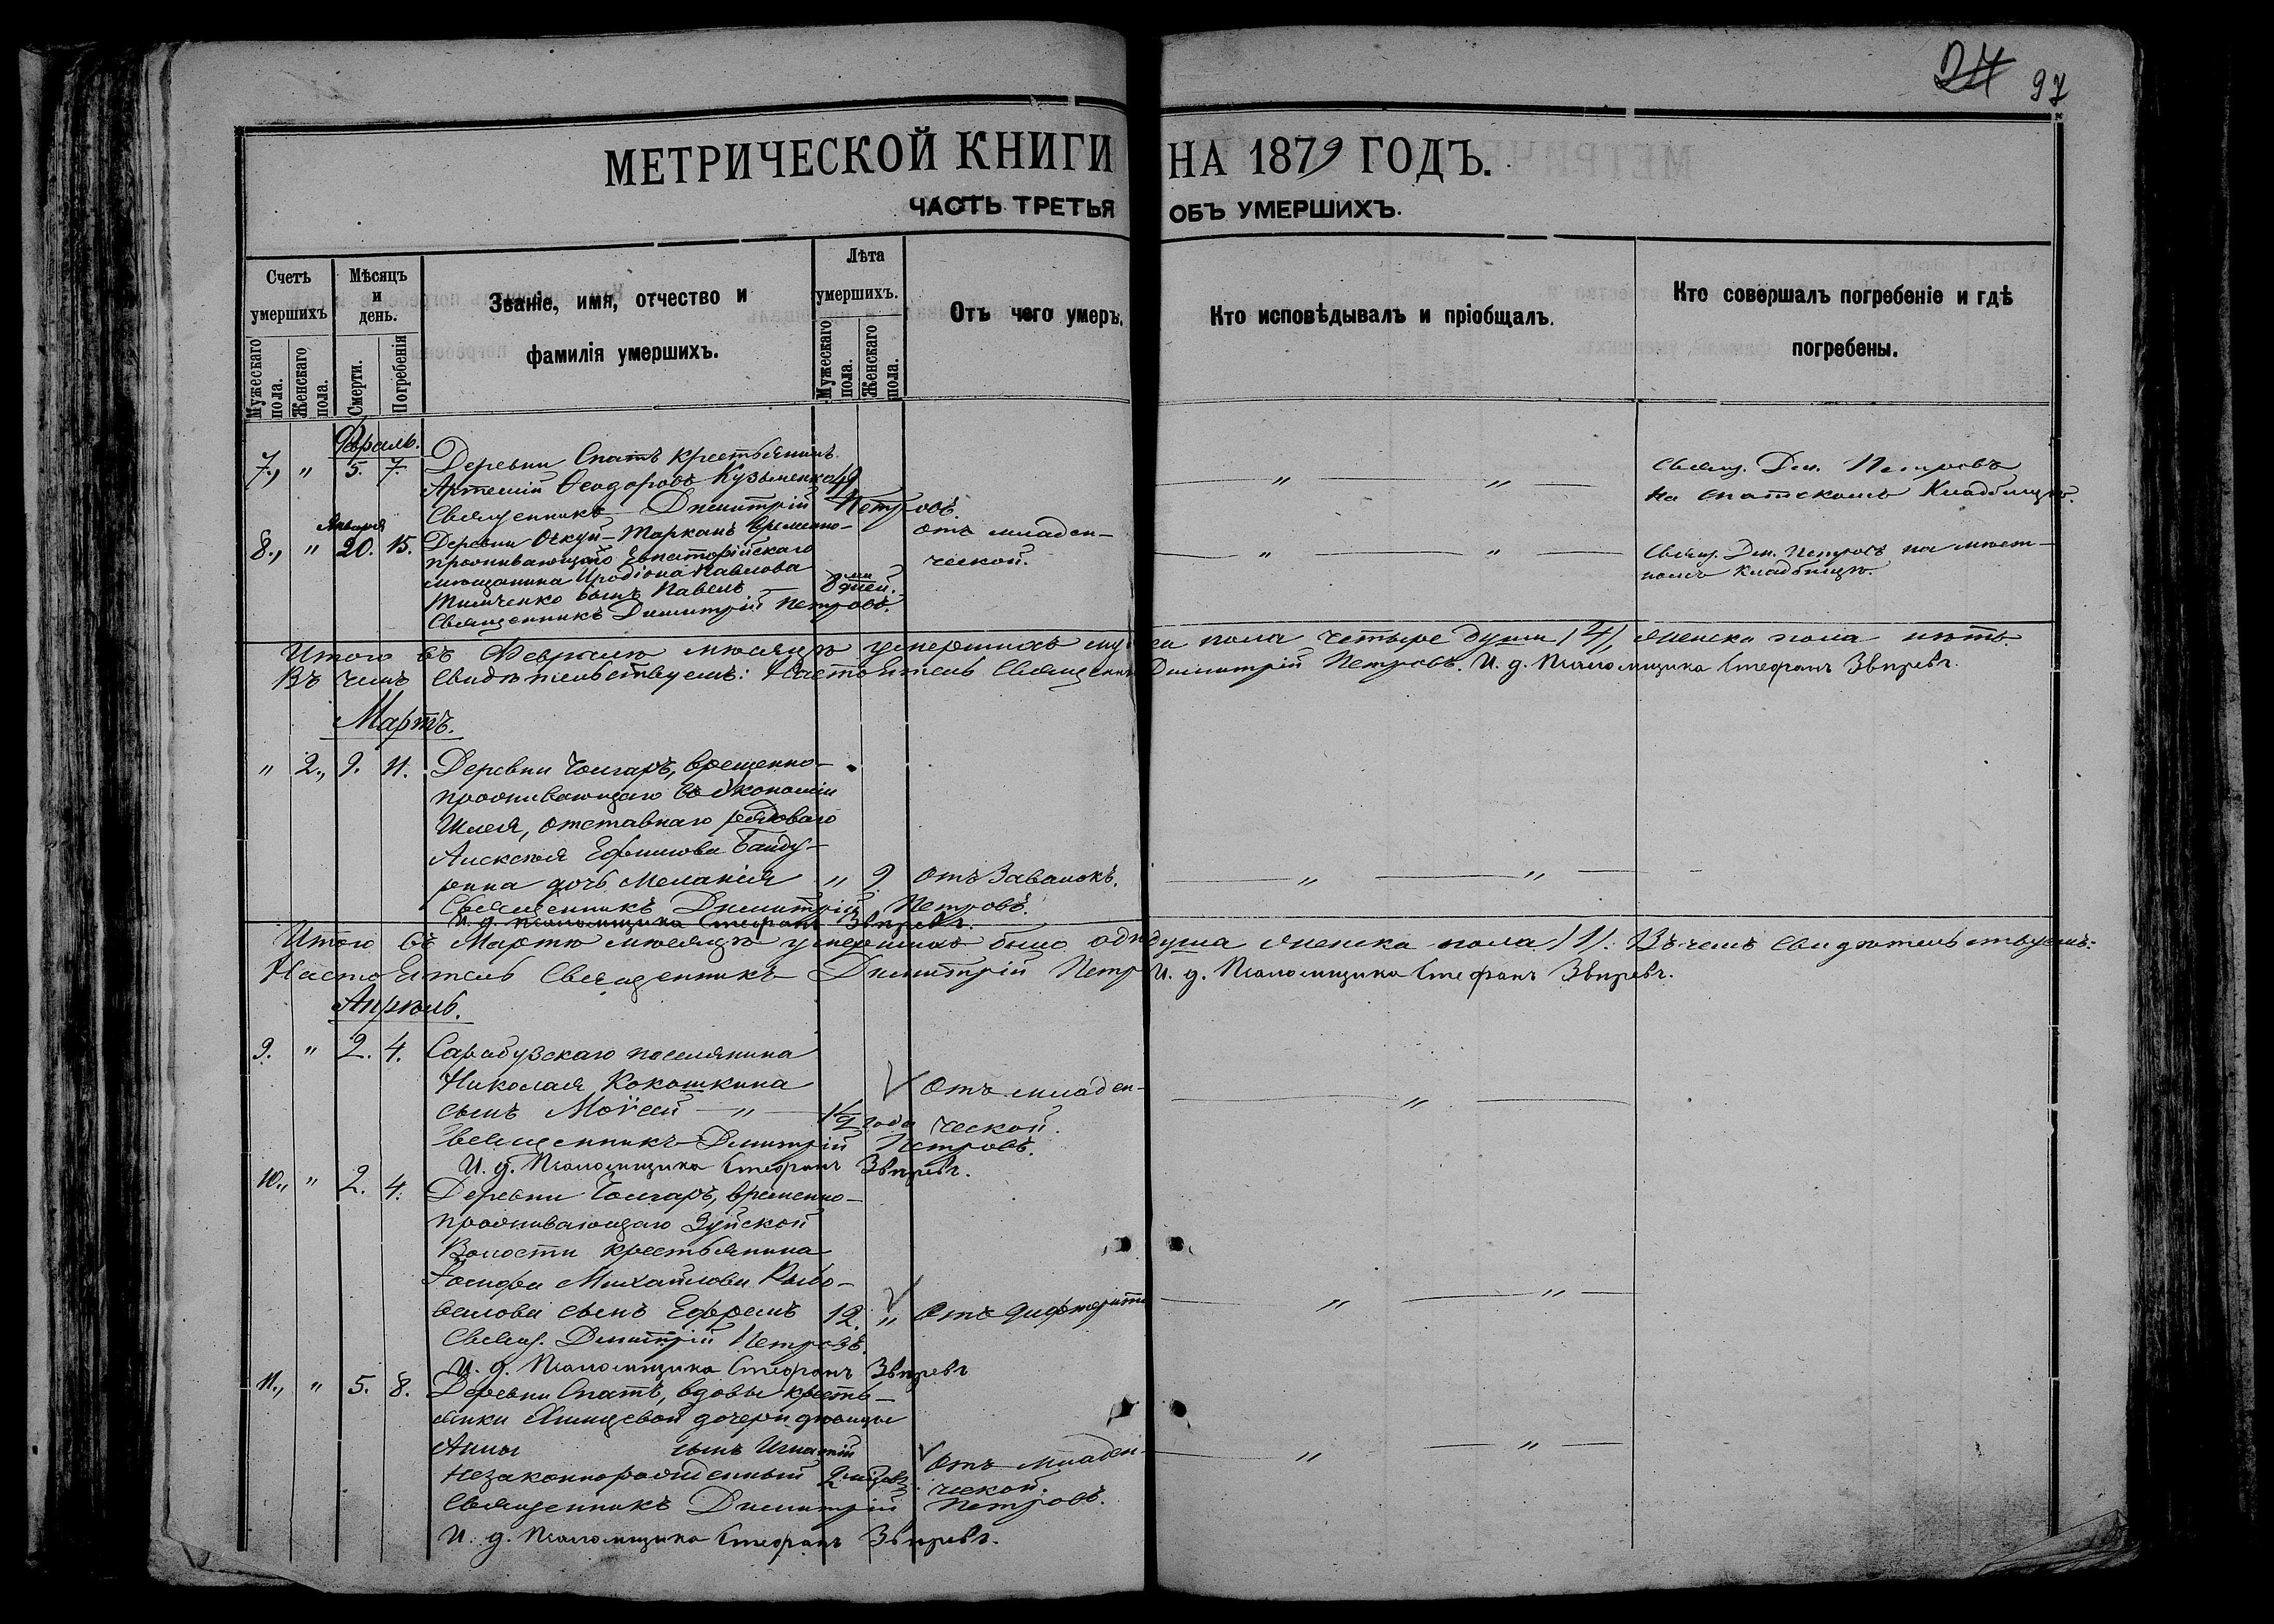 24 97
МЕТРИЧЕСКОЙ КНИГИ НА 1879 ГОДЪ.
ЧАСТЬ ТРЕТЬЯ ОБЪ УМЕРШИХЪ.
Счетъ умершихъ
Мужескаго пола.
Женскаго пола.
Мѣсяцъ и день.
Смерти.
Погребенія
Званіе, имя, отчество и
фамилія умершихъ.
Лѣта умершихъ.
Мужескаго пола.
Женскаго пола.
Отъ чего умеръ.
Кто исповѣдывалъ и пріобщалъ.
Кто совершалъ погребеніе и гдѣ
погребены.
7., " 5. 7. Деревни Спатъ крестьянинъ
Артемій Ѳеодоровъ Кузьменко 49
Священникъ Димитрій Петровъ.
" " Свящ. Дим. Петровъ
на спатскомъ Кладбищѣ.
Января
8., " 20. 15. Деревни Очкуй-Тарканъ временно-
проживающаго Евпаторійскаго
мещанина Иродіона Павлова
Тимченко сынъ Павелъ. — 8 ми дней.
отъ младен-
ческой.
" " Свящ. Дим. Петровъ на мѣст-
номъ кладбищѣ.
Священникъ Димитрій Петровъ.
Итого въ Февралѣ мѣсяцѣ умершихъ пола четыре души /4/, женска пола нѣтъ.
Въ чемъ свидѣтельствуемъ: Настоятель Священ Димитрій Петровъ. И. д. Псаломщика Стефанъ Звѣревъ.
Мартъ.
" 2., 9. 11. Деревни Чонгаръ, временно-
проживающаго въ экономіи
Шлея, отставнаго рядоваго
Алексѣя Ефимова Банду-
рина дочь Меланія " 9 отъ Завалокъ.
" "
Священникъ Димитрій Петровъ.
И. д. Псаломщика Стефанъ Звѣревъ.
Итого въ Мартѣ мѣсяцѣ умершихъ было одн душа женска пола /1/. Въ чемъ свидѣтельствуемъ:
Настоятель Священникъ Димитрій Петр И. д. Псаломщика Стефанъ Звѣревъ.
Апрѣль.
9. " 2. 4. Сарабузскаго поселянина
Николая Кокошкина
сынъ Моѵсей — " — 1½ года
Отъ младен-
ческой.
"
Священникъ Димитрій Петровъ.
И. д. Псаломщика Стефанъ Звѣревъ.
10., " 2. 4. Деревни Чонгаръ, временно-
проживающаго Зуйской
Волости крестьянина
Михайлова
сынъ Ефремъ 12. " Отъ дифтерита
" "
Свящ. Димитрій Петровъ.
И. д. Псаломщика Стефанъ Звѣревъ
11., " 5. 8. Деревни Спатъ, вдовы кресть-
янки дочери дѣвицы
Анны сынъ Игнатій
незаконнорожденный
Отъ младен-
ческой.
" "
Священникъ Димитрій Петровъ.
И. д. Псаломщика Стефанъ Звѣревъ.